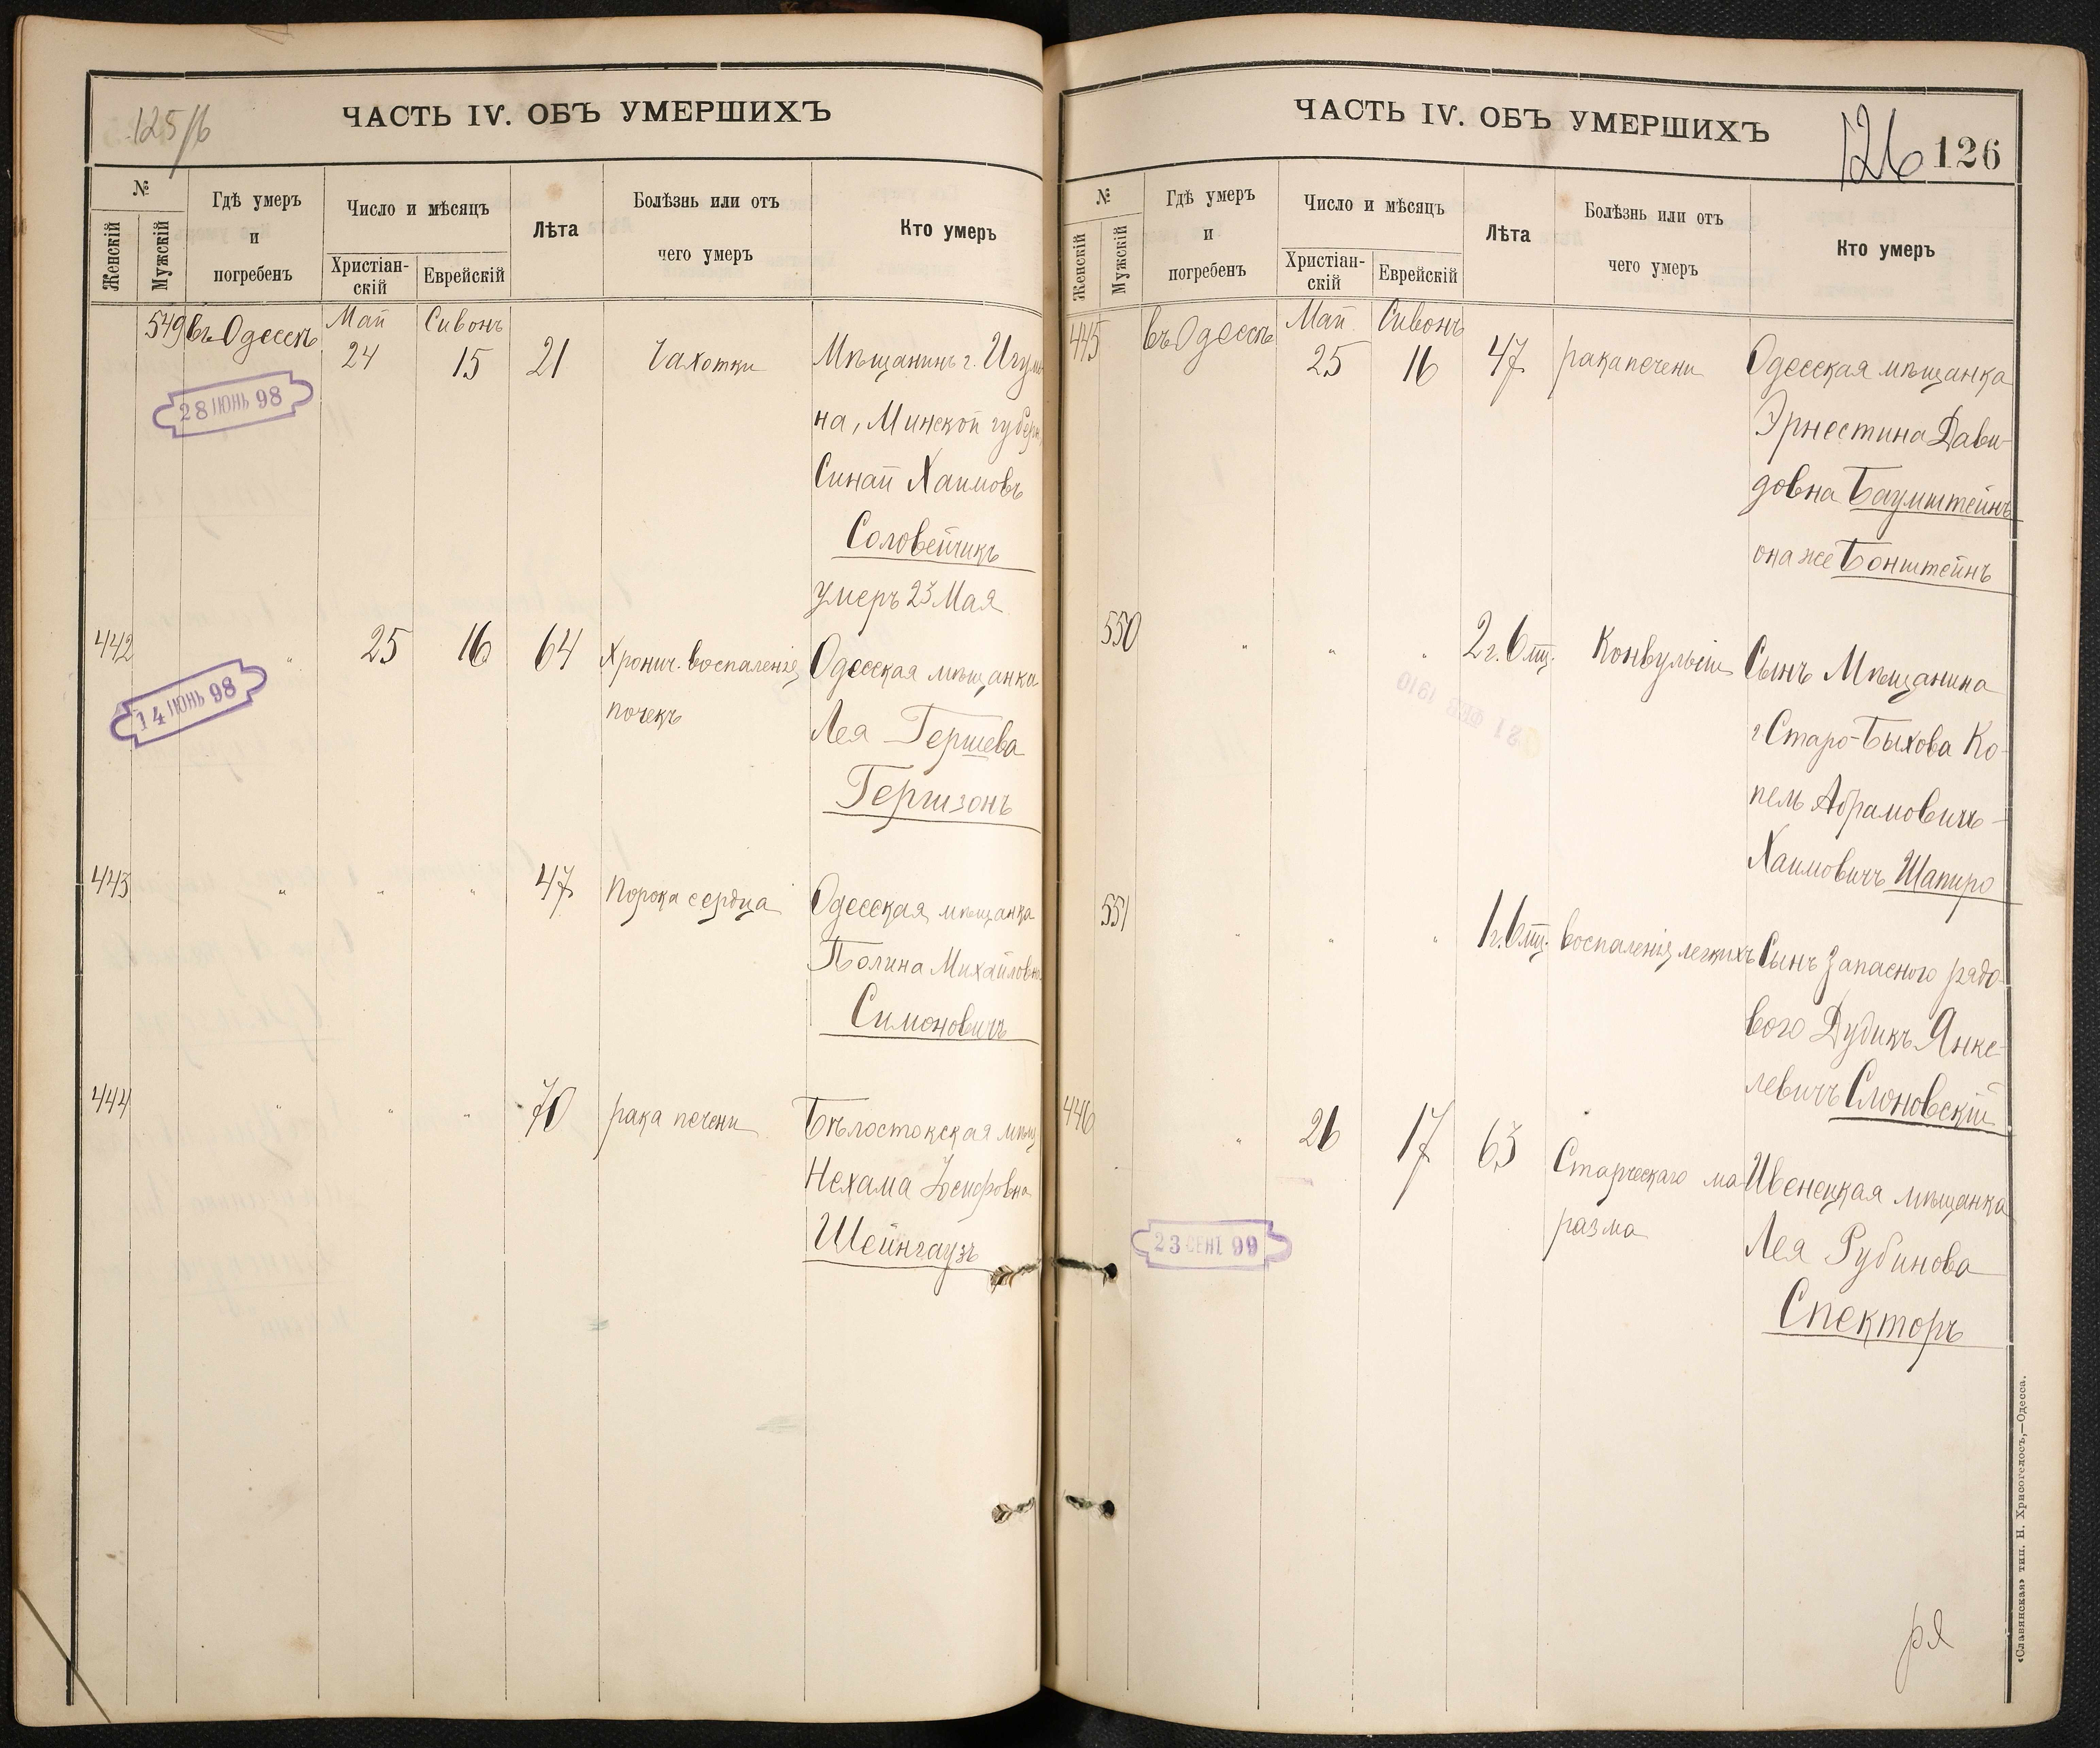 125/б
ЧАСТЬ IV. ОБЪ УМЕРШИХЪ
№
Женскій
Мужскій
Гдѣ умеръ
и
погребенъ
Число и мѣсяцъ
Христіан-
скій
Еврейскій
Лѣта
Болѣзнь или отъ
чего умеръ
Кто умеръ
549 въ Одессѣ Май 24 Сивонъ 15 21 Чахотки
Мѣщанинъ г. Игуме
на, Минской губерн.
Синай Хаимовъ
Соловейчикъ
умеръ 23 Мая
28 ІЮНЬ 98
442 " 25 16 64 Хронич. воспаленія
почекъ
Одесская мѣщанка
Лея Гершева
Гершзонъ
14 ІЮНЬ 98
443 " " " 47 Порока сердца
Одесская мѣщанка
Полина Михайловна
Симоновичъ
444 " " " 70 рака печени
Бѣлостокская мѣщ.
Нехама Іосифовна
Шейнгаузъ
ЧАСТЬ IV. ОБЪ УМЕРШИХЪ
126 126
№
Женскій
Мужскій
Гдѣ умеръ
и
погребенъ
Число и мѣсяцъ
Христіан-
скій
Еврейскій
Лѣта
Болѣзнь или отъ
чего умеръ
Кто умеръ
445 въ Одессѣ Май 25 Сивонъ 16 47 рака печени
Одесская мѣщанка
Эрнестина Дави-
довна Баумштейнъ
она же Бонштейнъ
550 " " " 2 г. 6 мц. Конвульсіи
Сынъ Мѣщанина
г. Старо-Быхова Ко-
пель Абрамовичъ-
Хаимовичъ Шапиро
21 ФЕВ 1910
551 " " " 1 г. 6 мц. воспаленія легкихъ
Сынъ Запаснаго рядо-
вого Дудикъ Янке-
левичъ Слоновскій
446 " 26 17 63 Старческаго ма
разма
Ивенецкая мѣщанка
Лея Рубинова
Спекторъ
23 СЕНТ 99
«Славянская» тип. Н. Хрисогелосъ,—Одесса.